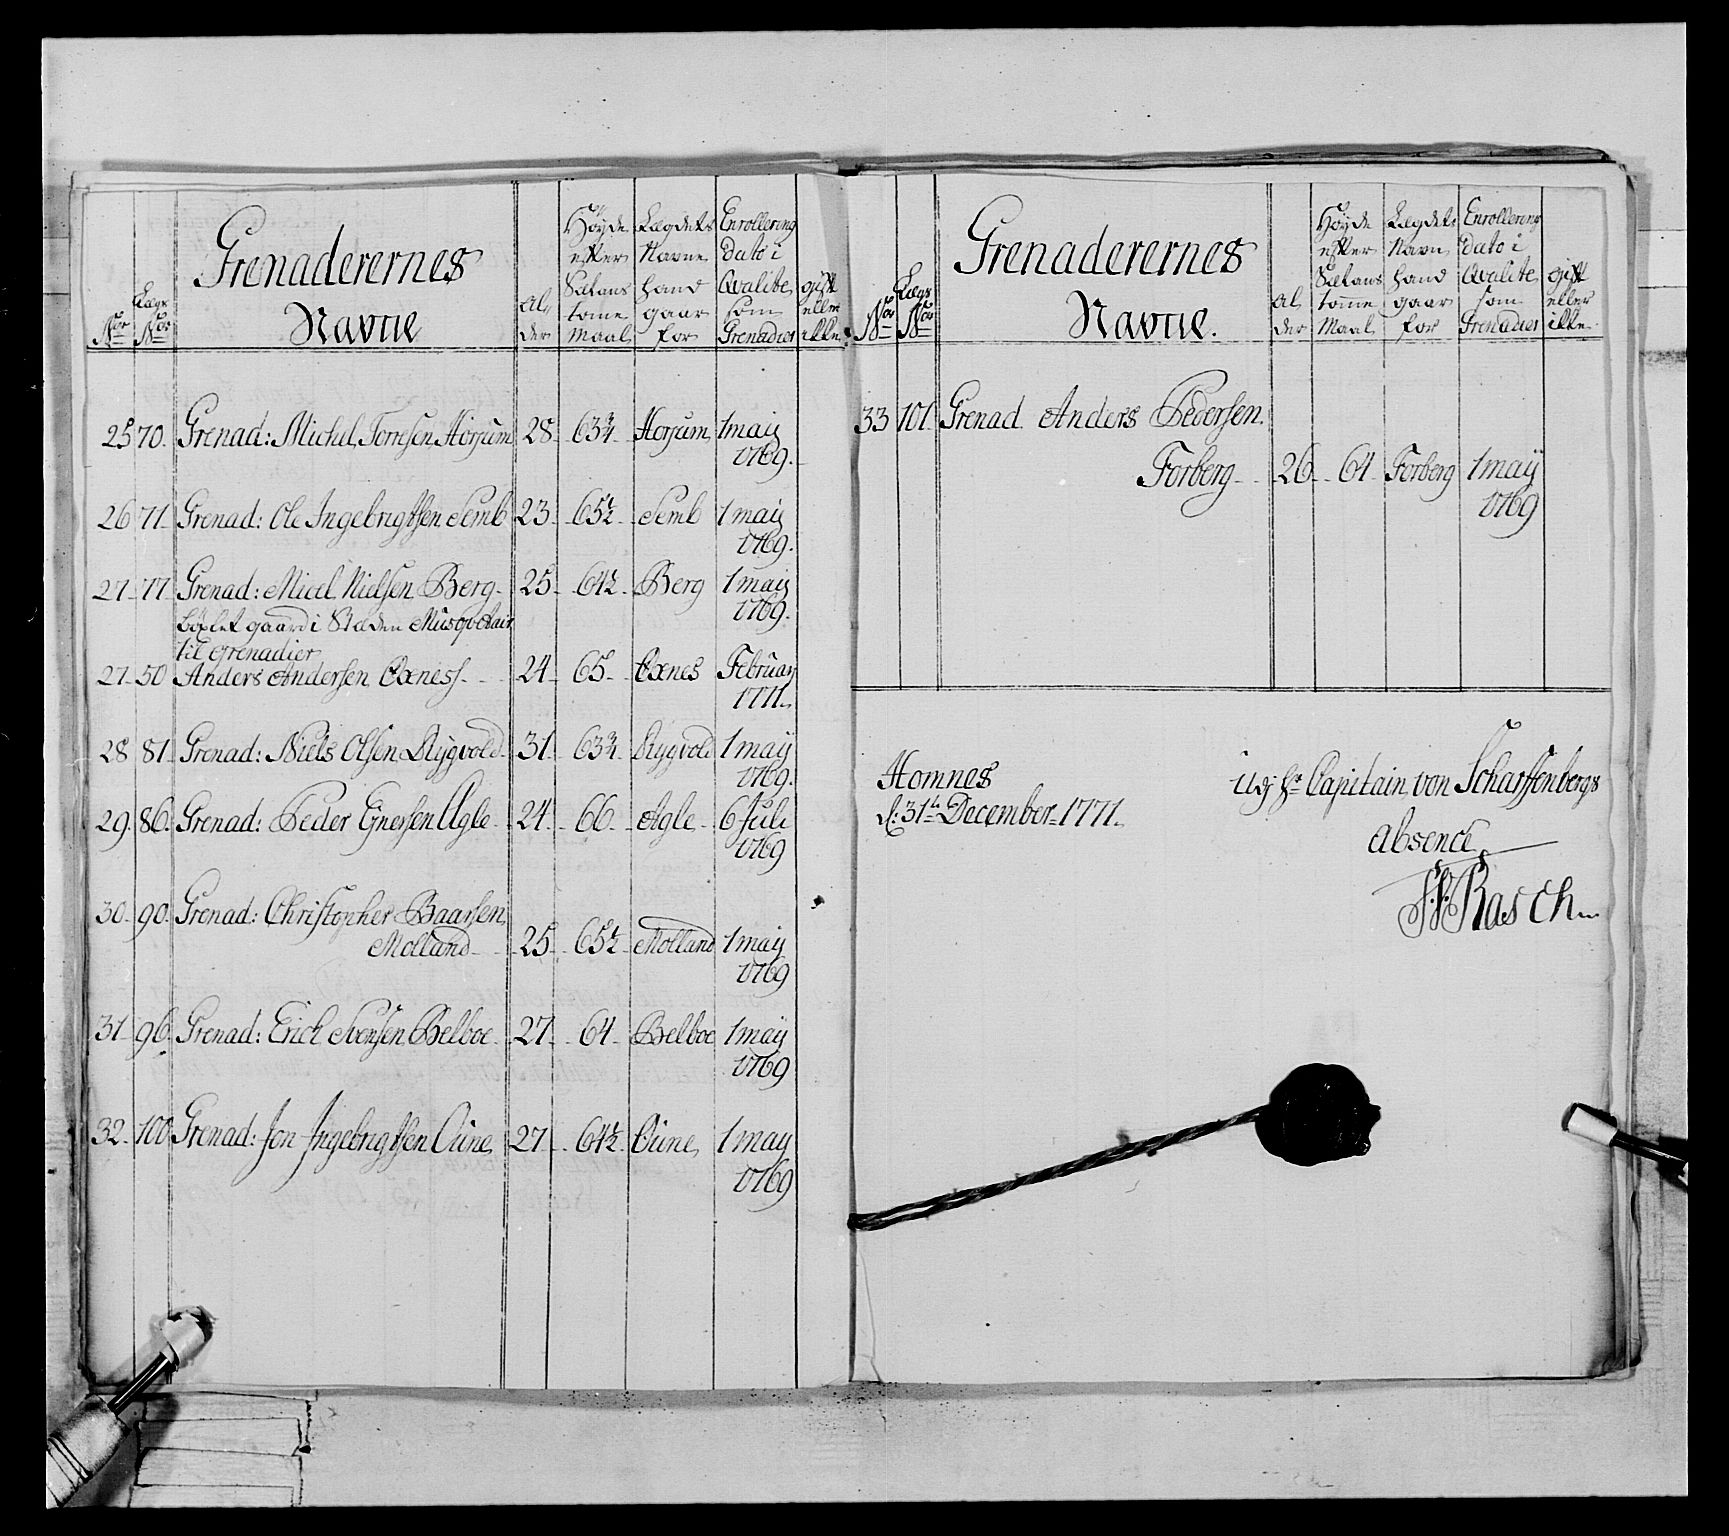 Nor
Lægs Nor
Grenaderernes Navne
Al, der
Høyde efter Sætans tomme Maal
Lægdets Navne hand gaar for
Enrollering Dato i Qvalite som Grenadier
gift eller ikke
25 70. Grenad: Michel Torresen Horjum 28 63¾ Horjum 1 maij 1769.
26 71 Grenad: Ole Ingebrigtsen Semb 23 65½ Semb 1 maij 1769.
27 77 Grenad: Micel Nielsen Berg 25 64½ Berg 1 maij 1769.
gaard i Stæden Musqvetair
til grenadier
27 50 Anders Andersen Oxness 24 65 Oxnes Februar 1771.
28 81 Grenad: Niels Olsen Rygvold 31 63¾ Rygvold 1 maij 1769.
29. 86. Grenad: Peder Ejnersen Agle 24 66 Agle 6 Juli 1769
30 90. Grenad: Christopher Baarsen
Molland 25 65½ Molland 1 maij 1769
31 96 Grenad: Erich Svensen Belboe 27 64 Belboe 1 maij 1769
32 100 Grenad: Jon Ingebrigtsen Oune 27 64½ Oune 1 maij 1769
Nor
Lægs Nor
Grenaderernes Navne.
Al, der
Høyde efter Sætans tomme Maal
Lægdets Navn hand gaar for
Enrollering Dato i Qvalite som Grenadier
gift eller ikke
33 101 Grenad Anders Pedersen
Forberg 26 64 Forberg 1 maij 1769
Homnes
d: 31te December 1771.
udj Hr Capitain von Scharffenbergs
absence
Rasch